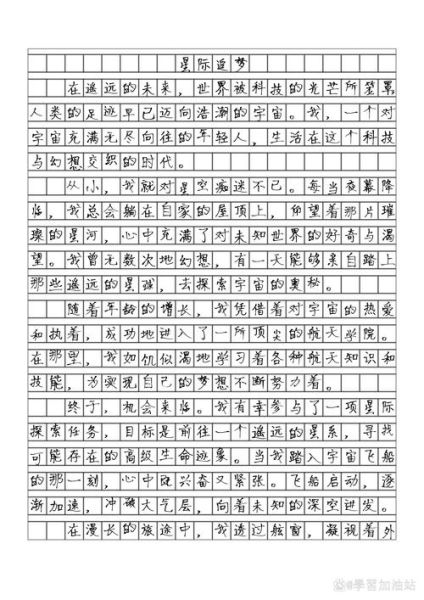 星际追梦
在遥远的未来，世界被科技的光芒所笼罩，
人类的足迹早已迈向浩瀚的宇宙。我，一个对
宇宙充满无尽向往的年轻人，生活在这个科技
与幻想交织的时代。
从小，我就对星空痴迷不已。每当夜幕降
临，我总会躺在自家的屋顶上，仰望着那片璀
璨的星河，心中充满了对未知世界的好奇与渴
望。我曾无数次地幻想，有一天能够亲自踏上
那些遥远的星球，去探索宇宙的奥秘。
随着年龄的增长，我凭借着对宇宙的热爱
和执着，成功地进入了一所顶尖的航天学院。
在那里，我如饥似渴地学习着各种航天知识和
技能，为实现自己的梦想不断努力着。
终于，机会来临。我有幸参与了一项星际
探索任务，目标是前往一个遥远的星系，寻找
可能存在的高级生命迹象。当我踏入宇宙飞船
的那一刻，心中既兴奋又紧张。飞船启动，逐
渐加速，冲破大气层，向着未知的深空进发。
在漫长的旅途中，我透过舷窗，凝视着外
@學習加油站